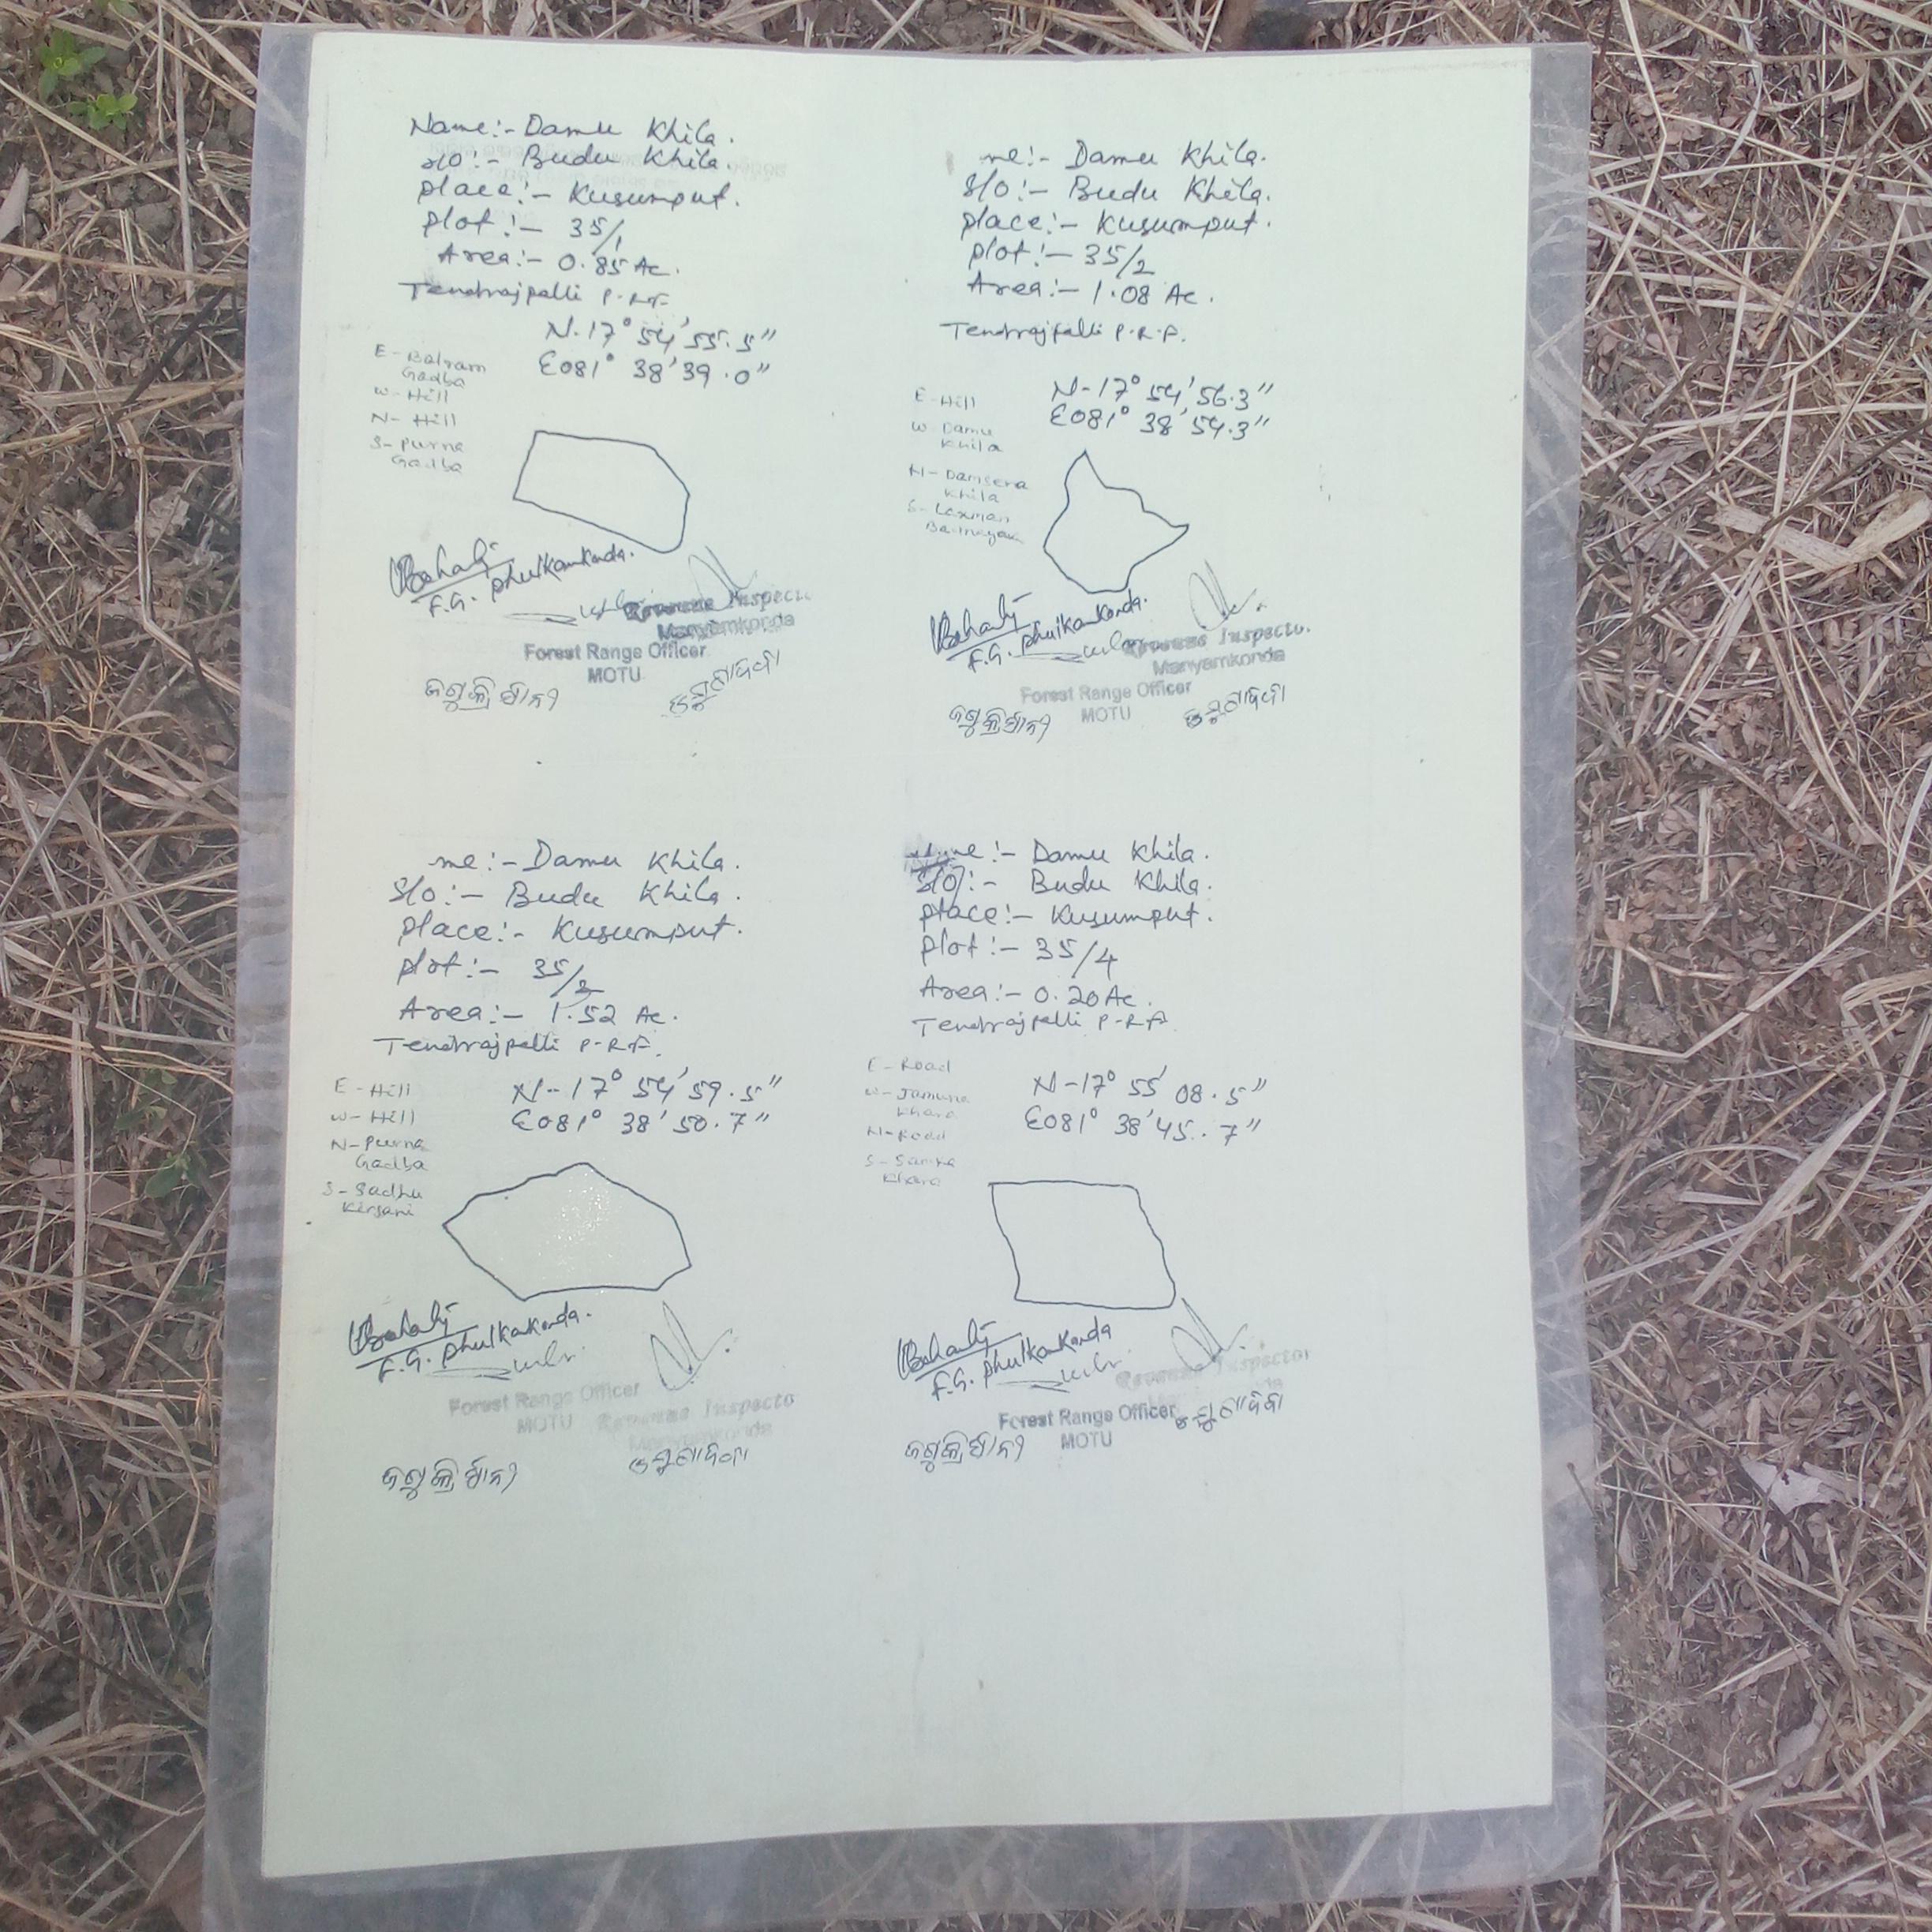 Name:- Damu Khila.
S/o:- Budu Khila.
place:- Kusumput.
plot:- 35/1
Area:- 0.85 Ac.
Tendrajpalli P.R.F
N-17° 54' 55.5"
E081° 38' 39.0"
E- Balram
Gadba
W- Hill
N- Hill
S- Purna
Gadba
F.G. Phulkamkonda.
Revenue Inspecto
Manyamkonda
Forest Range Officer
MOTU
me:- Damu Khila.
S/o:- Budu Khila.
place:- Kusumput.
plot:- 35/2
Area:- 1.08 Ac.
Tendrajpalli P.R.F.
N-17° 54' 56.3"
E081° 38' 54.3"
E- Hill
W- Damu
Khila
N- Damsera
Khila
S- Laxman
F.G. Phulkamkonda.
Revenue Inspecto.
Manyamkonda
Forest Range Officer
MOTU
me:- Damu Khila.
S/o:- Budu Khila.
place:- Kusumput.
plot:- 35/3
Area:- 1.52 Ac.
Tendrajpalli P.R.F.
N-17° 54' 59.5"
E081° 38' 50.7"
E- Hill
W- Hill
N- Purna
Gadba
S- Sadhu
Kirsani
F.G. Phulkakonda.
Forest Range Officer
MOTU
Revenue Inspecto
Manyamkonda
me:- Damu Khila.
S/o:- Budu Khila.
place:- Kusumput.
plot:- 35/4
Area:- 0.20 Ac.
Tendrajpalli P.R.F.
N-17° 55' 08.5"
E081° 38' 45.7"
E- Road
W- Jamuna
Khara
N- Road
S- Samra
Khara
F.G. Phulkakonda
Revenue Inspector
Forest Range Officer
MOTU